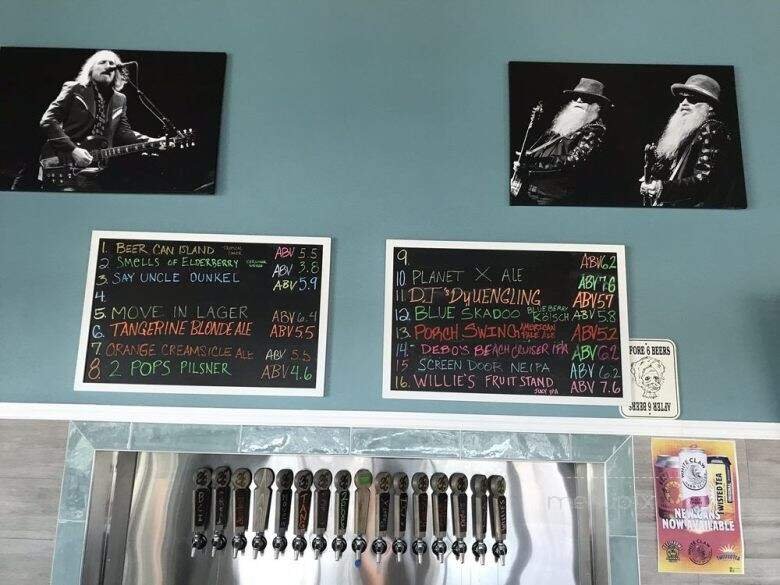 1. BEER CAN ISLAND TROPICAL ABV 5.5
2. SMELLS OF ELDERBERRY ABV 3.8
3. SAY UNCLE DUNKEL ABV 5.9
4
5. MOVE IN LAGER ABV 6.4
6. TANGERINE BLONDE ALE ABV 5.5
7. ORANGE CREAMSICLE ALE ABV 5.5
8 2 POPS PILSNER ABV 4.6
9. ABV 6.2
10 PLANET X ALE ABV 7.6
11 D.J'S DYUENGLING ABV 57
12. BLUE SKADOO BLUEBERRY KÖLSCH ABV 5.8
13. PORCH SWING AMERICAN PALE ALE ABV 5.2
14. DEBO'S BEACH CRUISER IPA ABV 6.2
15 SCREEN DOOR NEIPA ABV 6.2
16. WILLIE'S FRUIT STAND JUICY IPA ABV 7.6
FORE 6 BEERS
AFTER 6 BEERS
WHITE CLAW
TWISTED TEA
NEW CANS
NOW AVAILABLE